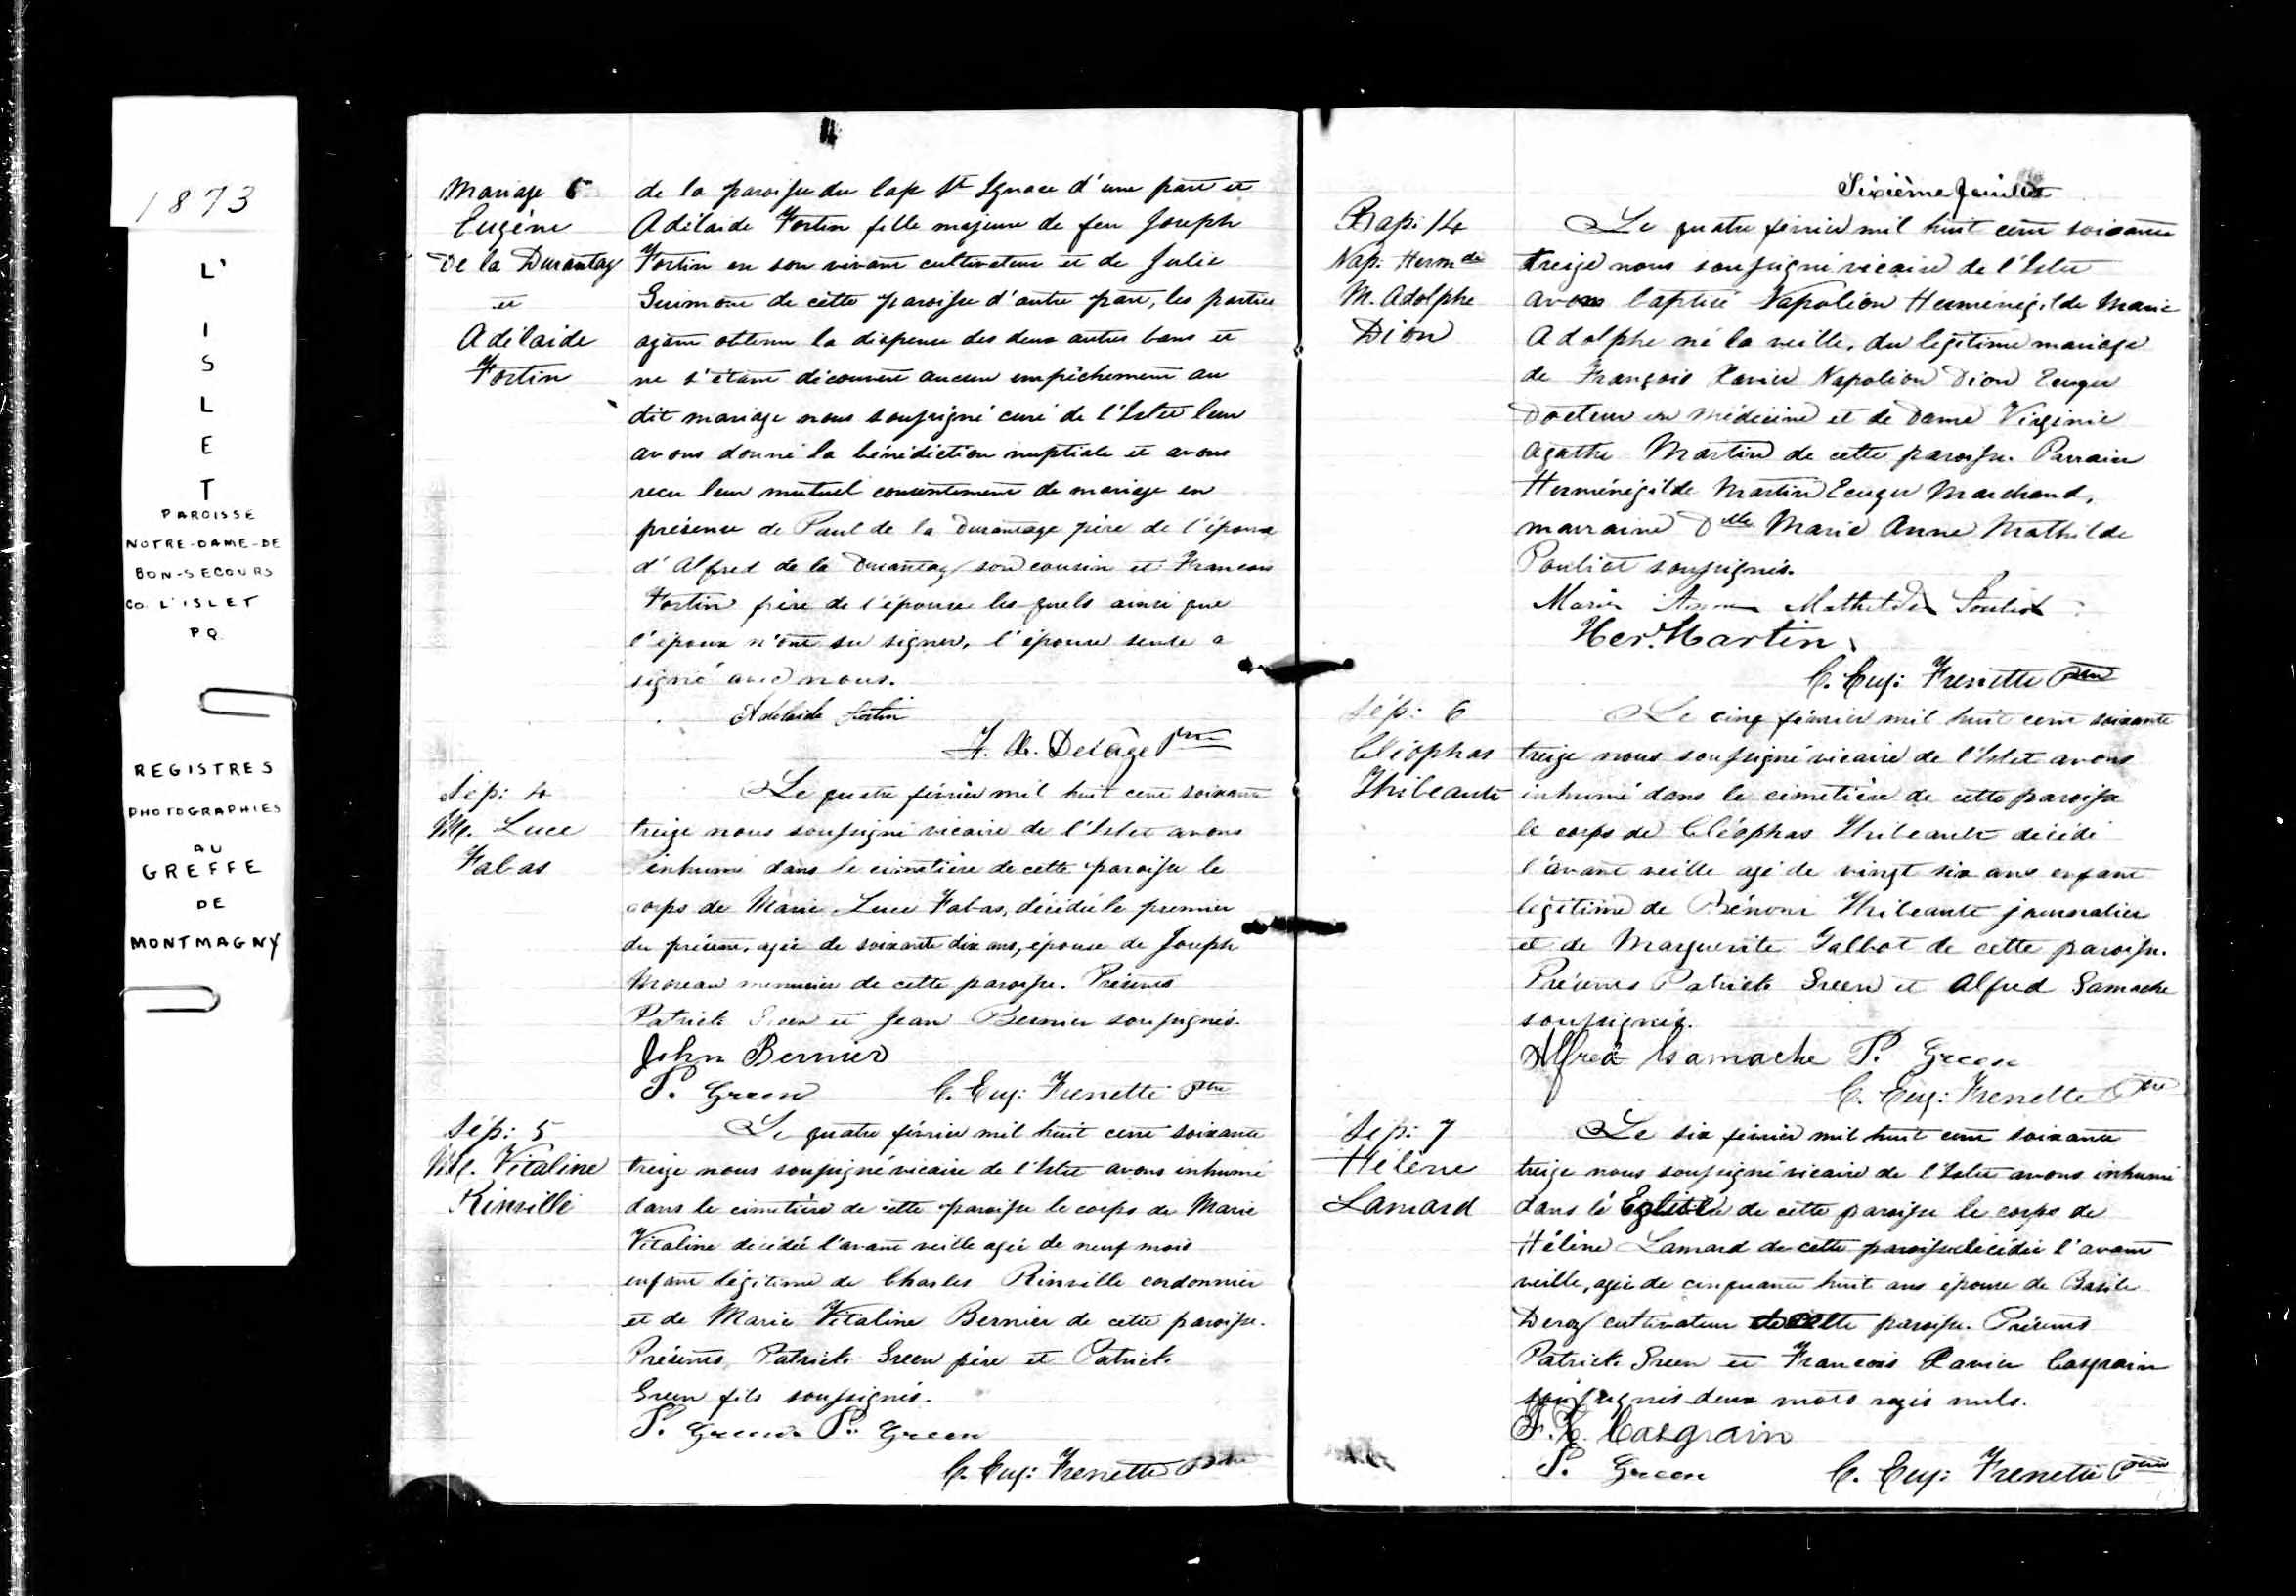 1873
L'
I
S
L
E
T
PAROISSE
NOTRE-DAME-DE
BON-SECOURS
CO. L'ISLET
P Q
REGISTRES
PHOTOGRAPHIES
AU
GREFFE
DE
MONTMAGNY
Mariage 6
Eugène
De la Durantay
et
Adélaide
Fortin
de la paroisse du Cap St Ignace d'une part et
Adélaide Fortin fille majeure de feu Joseph
Fortin en son vivant cultivateur et de Julie
Guimont de cette paroisse d'autre part, les parties
ayant obtenu la dispense des deux autres bans et
ne s'étant découvert aucun empêchement au
dit mariage nous soussigné curé de l'Islet leur
avons donné la bénédiction nuptiale et avons
recu leur mutuel consentement de mariage en
présence de Paul de la Durantaye père de l'époux
d'Alfred de la Durantay son cousin et Francois
Fortin frère de l'épouse les quels ainsi que
l'époux n'ont su signer, l'épouse seule a
signé avec nous.
Adelaide Fortin
F. X. Delâge Ptre
Sép: 4
M. Luce
Fabas
Le quatre février mil huit cent soixante
treize nous soussigné vicaire de l'Islet avons
inhumé dans le cimetière de cette paroisse le
corps de Marie Luce Fabas, décédée le premier
du présent, agée de soixante dix ans, épouse de Joseph
Moreau menuisier de cette paroisse. Présents
Patrick Green et Jean Bernier soussignés.
John Bernier
P. Green C. Eug: Frenette Ptre
Sép: 5
M. Vitaline
Rinville
Le quatre février mil huit cent soixante
treize nous soussigné vicaire de l'Islet avons inhumé
dans le cimetière de cette paroisse le corps de Marie
Vitaline décédée l'avant veille agée de neuf mois
enfant légitime de Charles Rinville cordonnier
et de Marie Vitaline Bernier de cette paroisse.
Présents Patrick Green père et Patrick
Green fils soussignés.
P. Green P. Green
C. Eug: Frenette Ptre
Sixième feuillet
Bap: 14
Nap. Herm de
M. Adolphe
Dion
Le quatre février mil huit cent soixante
treize nous soussigné vicaire de l'Islet
avons baptisé Napoléon Herménégilde Marie
Adolphe né la veille, du légitime mariage
de François Xavier Napoléon Dion Ecuyer
Docteur en Médecine et de Dame Virginie
Agathe Martin de cette paroisse. Parrain
Herménégilde Martin Ecuyer Marchand,
marraine Delle Marie Anne Mathilde
Pouliot soussignés.
Marie Anne Mathilde Pouliot
Her. Martin
C. Eug: Frenette Ptre
Sép: 6
Cléophas
Thibeault
Le cinq février mil huit cent soixante
treize nous soussigné vicaire de l'Islet avons
inhumé dans le cimetière de cette paroisse
le corps de Cléophas Thibeault décédé
l'avant veille agé de vingt six ans enfant
légitime de Bénoni Thibeault journalier
et de Marguerite Talbot de cette paroisse.
Présents Patrick Green et Alfred Gamache
soussignés.
Alfred Gamache P. Green
C. Eug: Frenette Ptre
Sép: 7
Hélène
Lamard
Le six février mil huit cent soixante
treize nous soussigné vicaire de l'Islet avons inhumé
dans l'Eglise de cette paroisse le corps de
Hélène Lamard de cette paroisse décédée l'avant
veille, agée de cinquante huit ans épouse de Basile
Deroy cultivateur de cette paroisse. Présents
Patrick Green et Francois Xavier Casgrain
soussignés deux mots rayés nuls.
F. X. Casgrain
P. Green C. Eug: Frenette Ptre